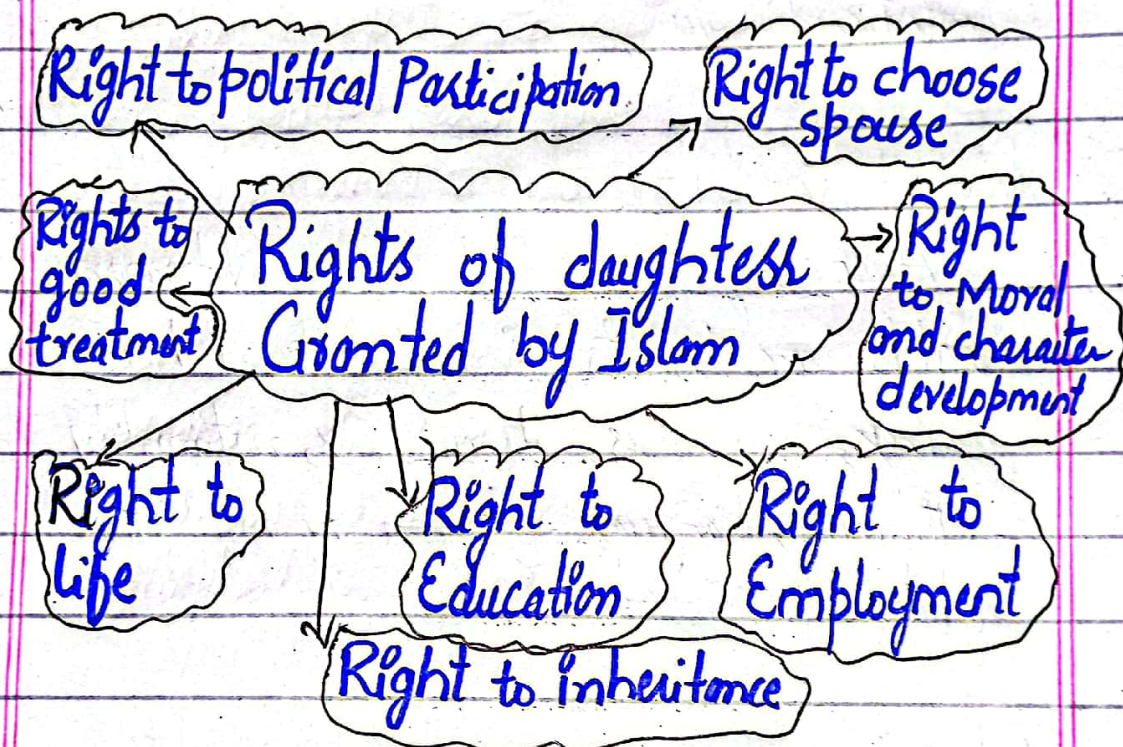 Right to political Participation
Right to choose
spouse
Rights to
good
treatment
Rights of daughters
Granted by Islam
Right
to Moral
and character
development
Right to
life
Right to
Education
Right to
Employment
Right to inheritance